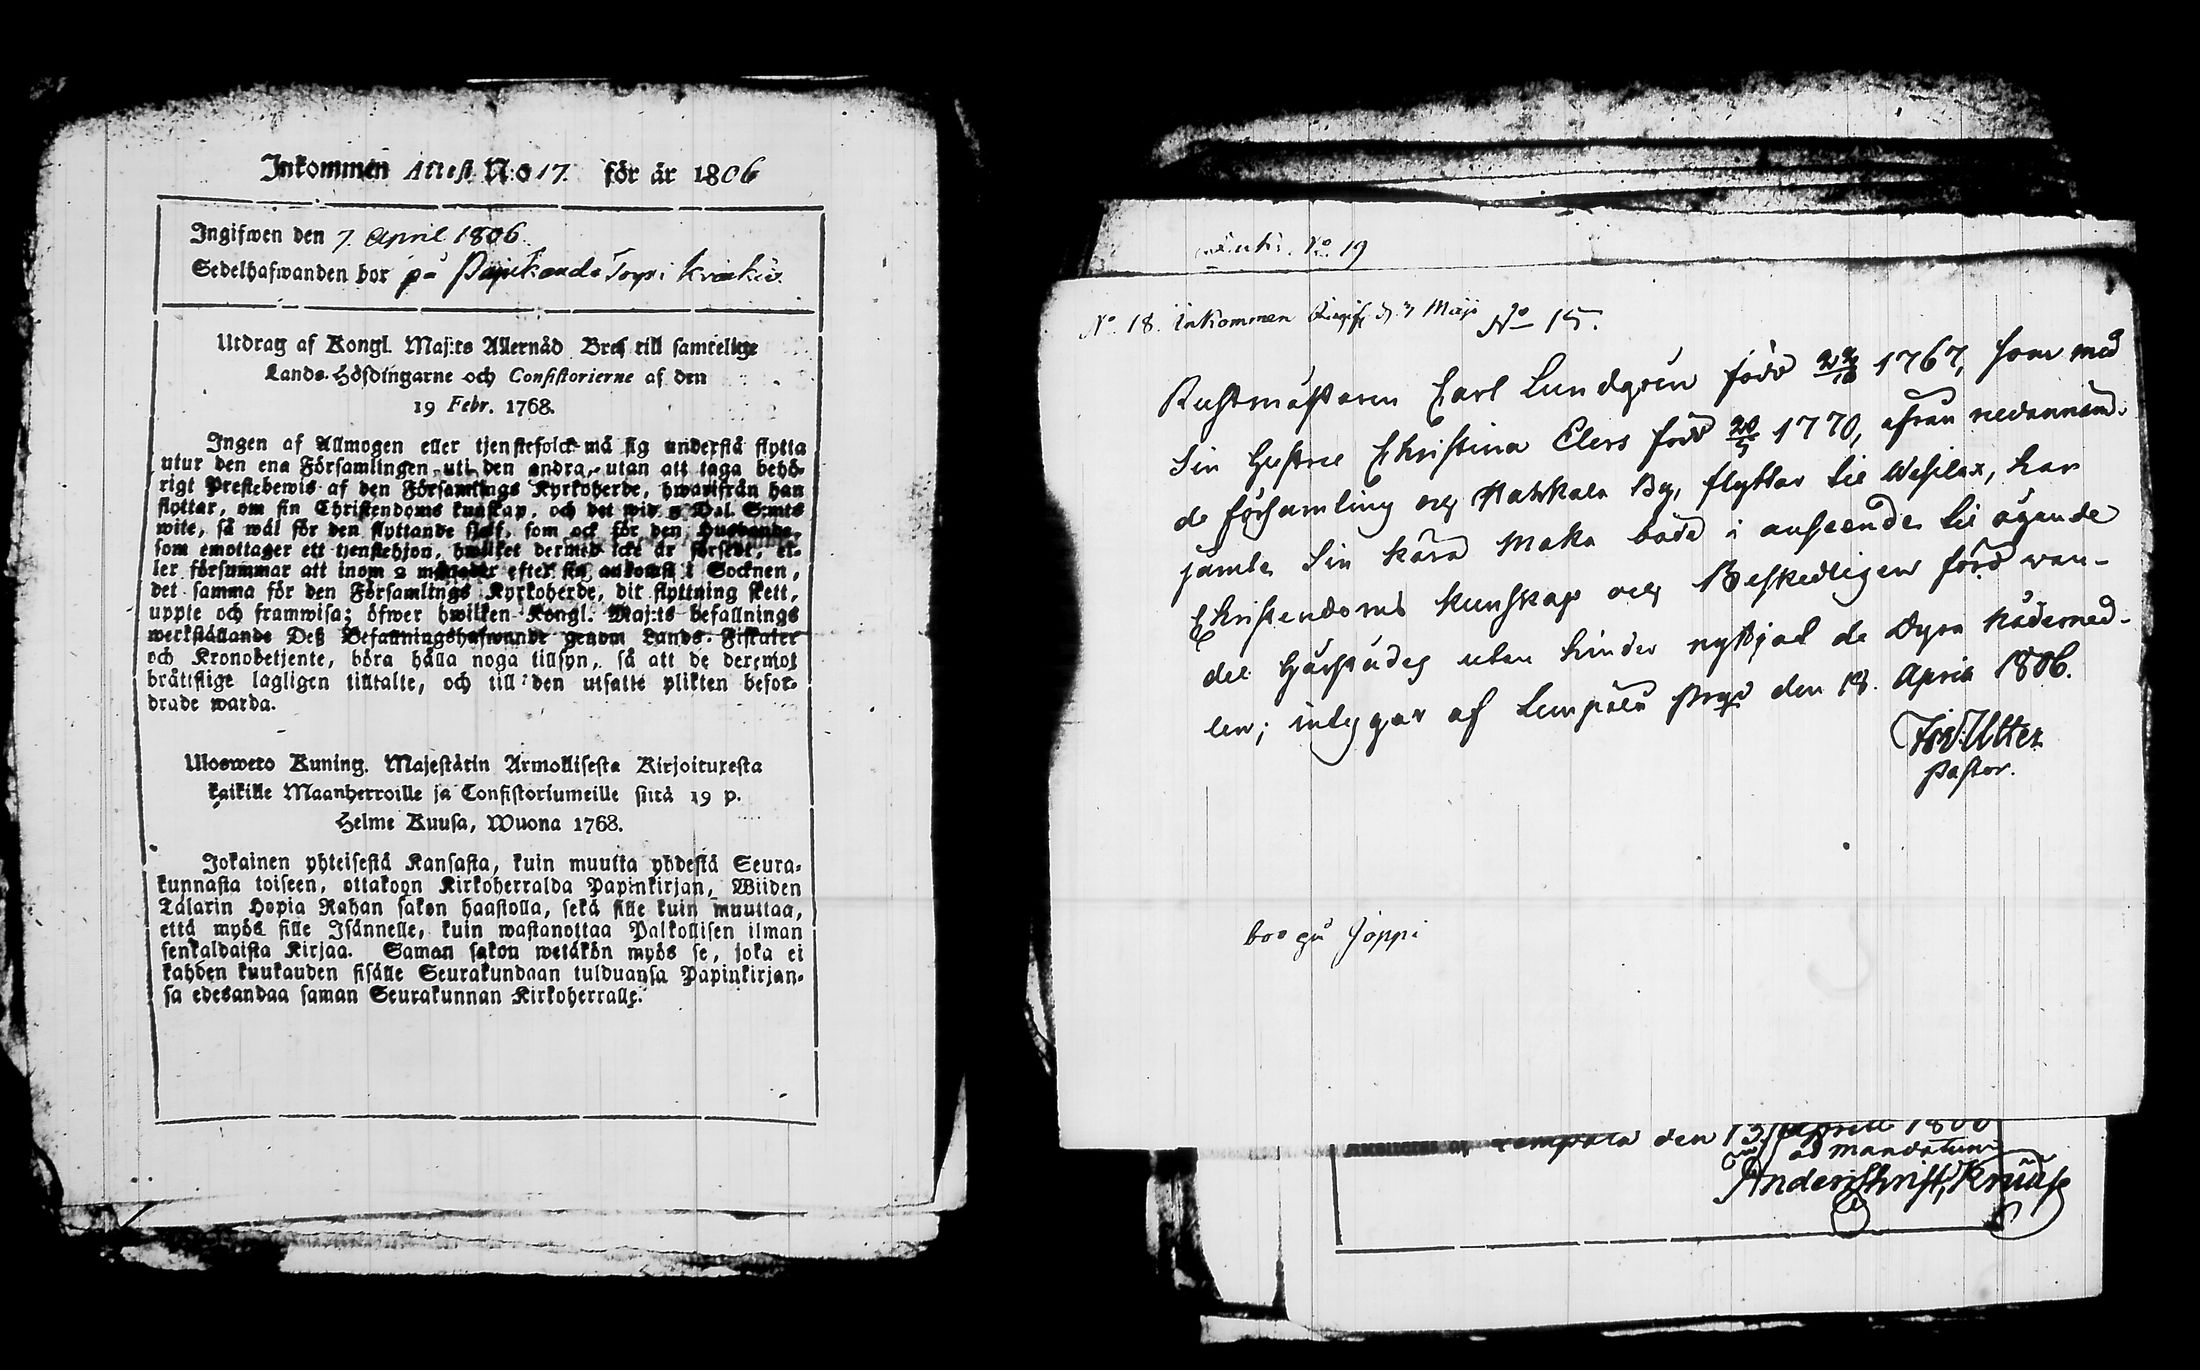 Inkommen Attest N:o 17. för år 1806
Ingifwen den 7 April 1806
Sedelhafwanden bor på Torp i
Utdrag af Kongl. Maj:ts Allernåd Bref till samtelige
Lands-Höfdingarne och Consistorierne af den
19 Febr. 1768.
Ingen af Allmogen eller tjenstefolck må sig understå flytta
utur den ena Församlingen uti den andra, utan att taga behö-
rigt Prestebewis af den Församlings Kyrkoherde, hwarifrån han
flyttar, om sin Christendoms kunskap, och det wid 5 Dal. S:mts
wite, så wäl för den flyttande sjelf, som ock för den Husbonde,
som emottager ett tjenstehjon, hwilket dermed icke är försedt, el-
ler försummar att inom 2 månader efter sin ankomst i Socknen,
det samma för den Församlings Kyrkoherde, dit flyttning skett,
uppte och framwisa; öfwer hwilken Kongl. Maj:ts befallnings
werkställande Deß Befallningshafwande genom Lands-Fiskaler
och Kronobetjente, böra hålla noga tillsyn, så att de deremot
bråttslige lagligen tilltalte, och till den utsatte plikten befor-
drade warda.
Uloswero Kuning. Majestätin Armollisesta Kirjoituxesta
kaikille Maanherroille ja Consistoriumeille siitä 19 p.
Helme Kuusa, Wuona 1768.
Jokainen yhteisestä Kansasta, kuin muutta yhdestä Seura-
kunnasta toiseen, ottakoon Kirkoherralda Papinkirjan, Wiiden
Talarin Hopia Rahan sakon haastolla, sekä sille kuin muuttaa,
että myös sille Isännelle, kuin wastanottaa Palkollisen ilman
senkaldaista Kirjaa. Saman sakon wetäkön myös se, joka ei
kahden kuukauden sisälle Seurakundaan tulduansa Papinkirjan-
sa edesandaa saman Seurakunnan Kirkoherralle.
No. 19
No 18. inkommen d. 7 Maji No 15.
Rustmästaren Carl Lundgren född 1767, som med
Sin Hustru Christina Elers född 20/5 1770, ifrån nedannämn-
de församling och By, flyttar till Wesilax, har
jämte Sin kära Maka både i anseende till ägande
Christendoms kunskap och Beskedligen förd wan-
del Härstädes utan hinder nyttjat de Dyra Nådemed-
len; intygar af Lempälä Prgd den 18. April 1806.
Utter
Pastor.
boo på Joppi
Lempälä den 13 Aprill 1806
ad mandatum